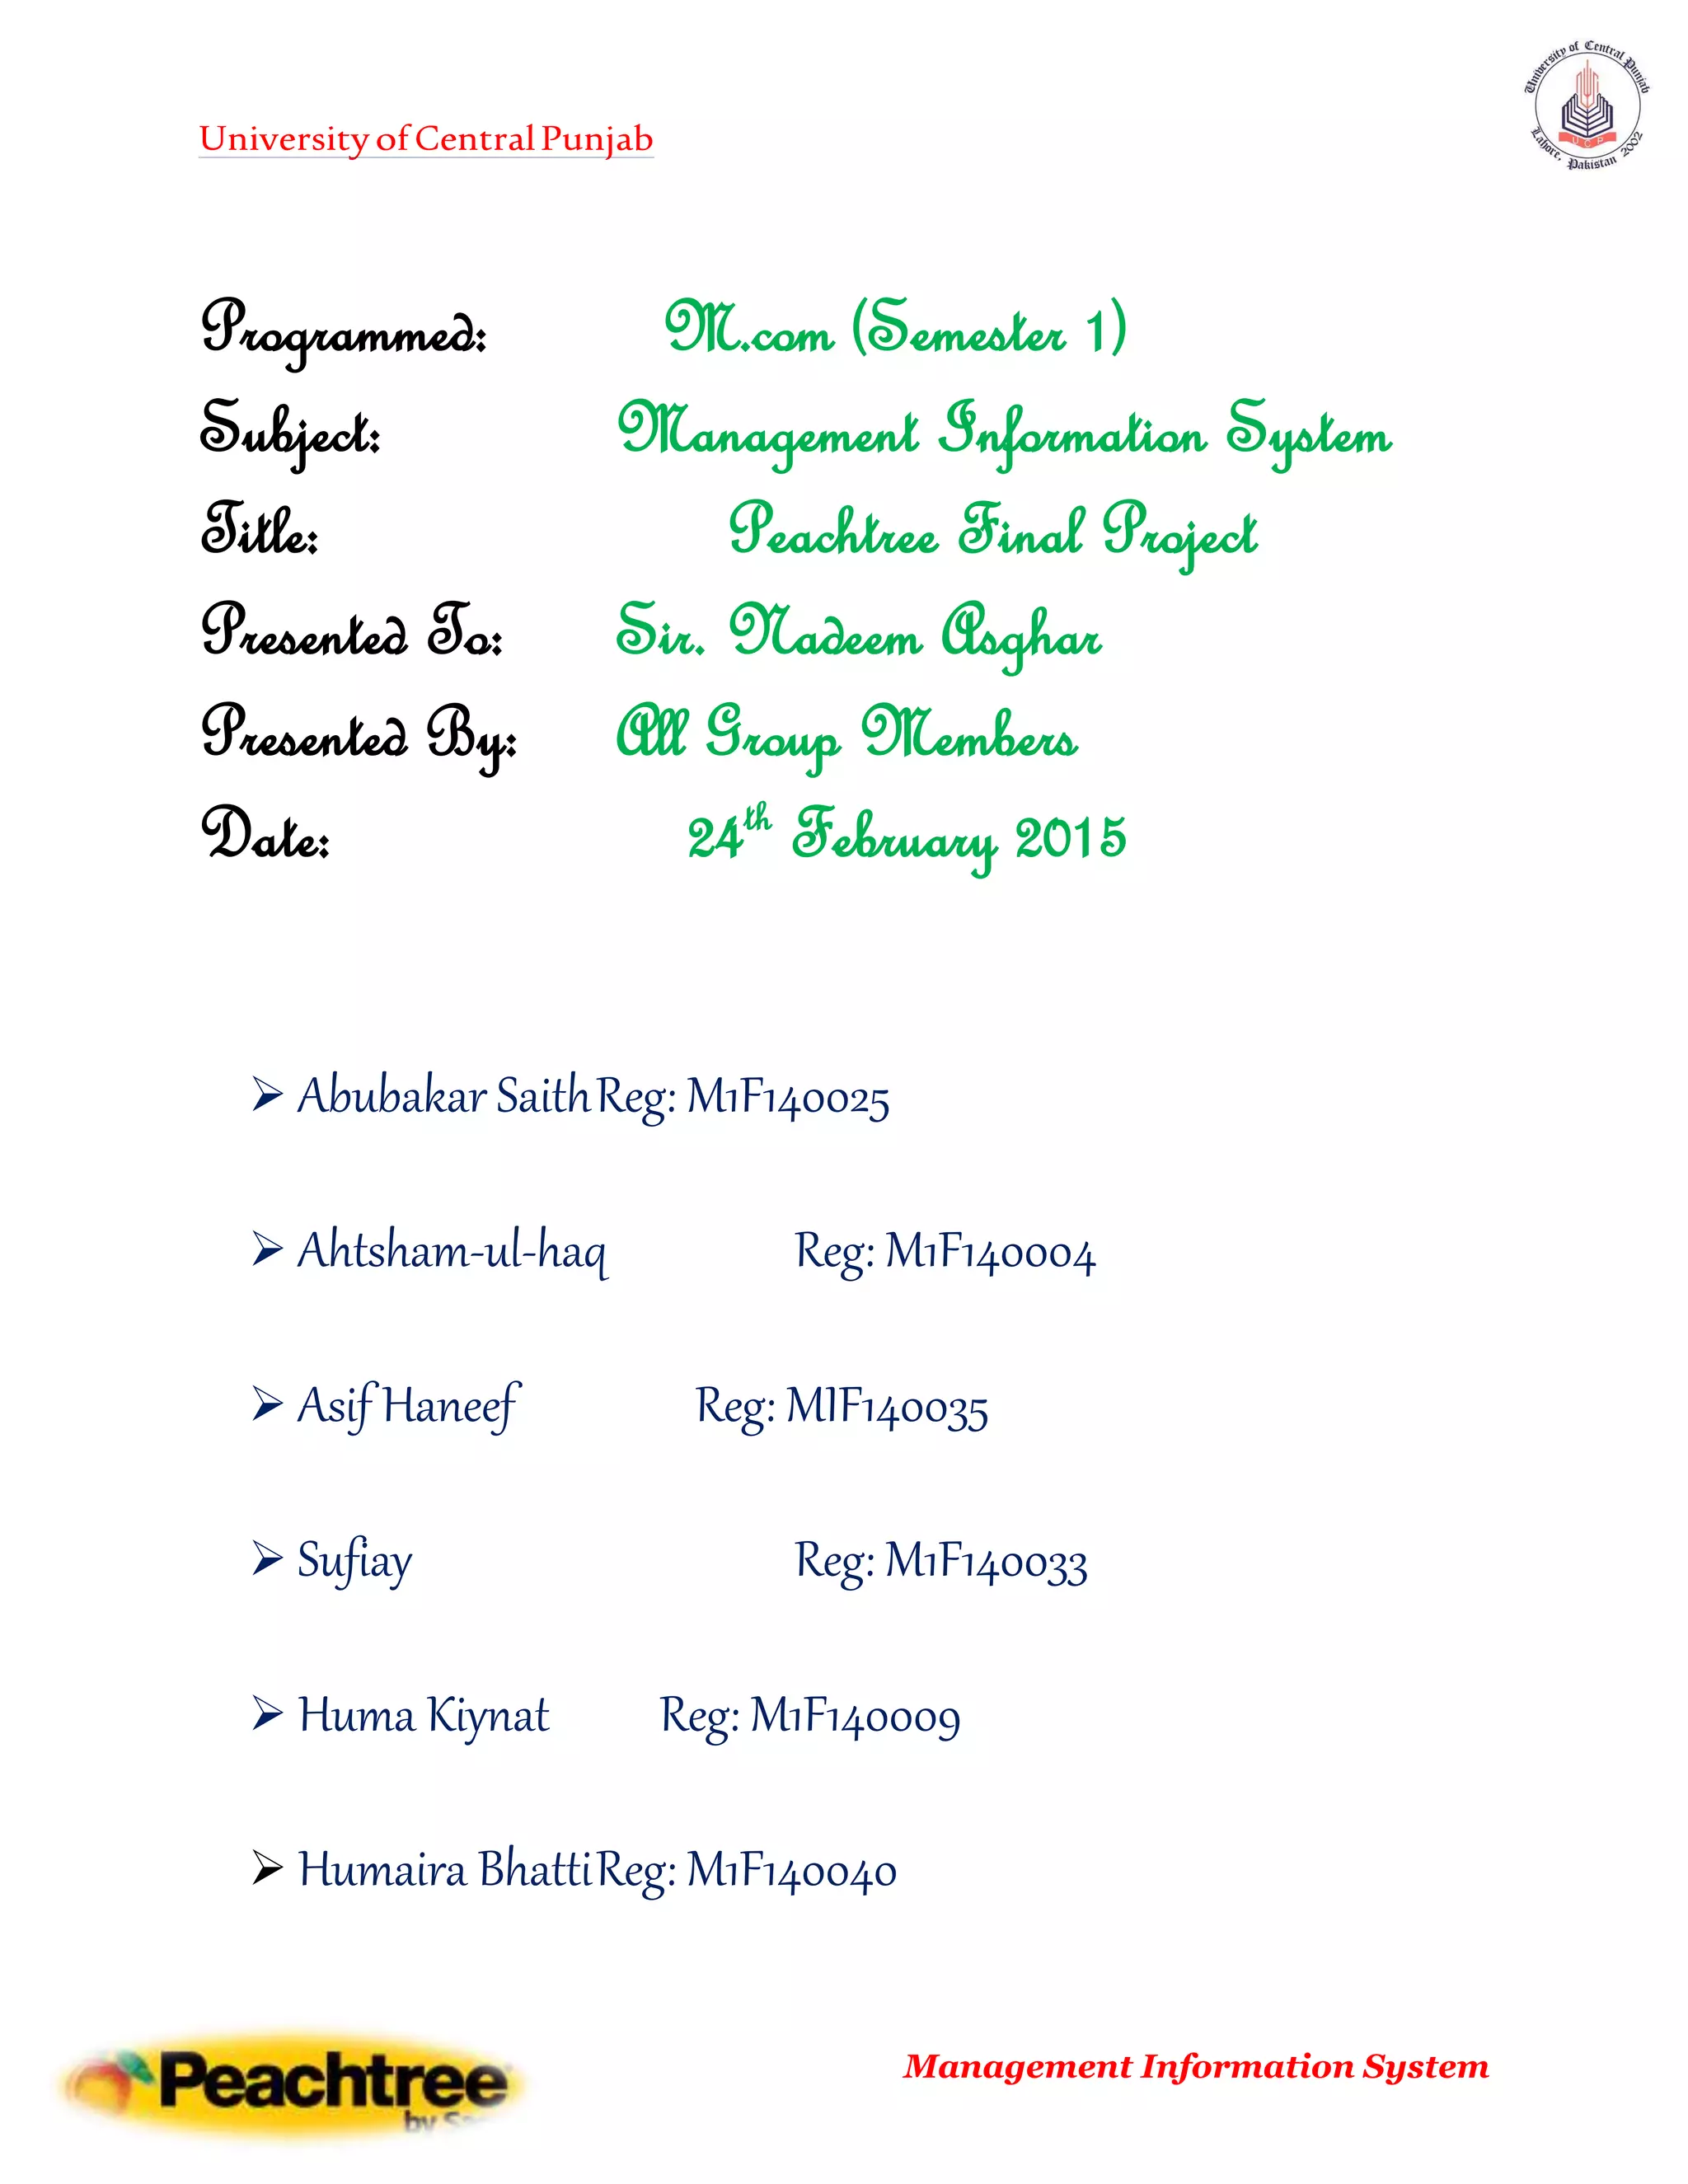 University of Central Punjab
University of Central Punjab
Lahore, Pakistan 2002
UCP
Programmed: M.com (Semester 1)
Subject: Management Information System
Title: Peachtree Final Project
Presented To: Sir. Nadeem Asghar
Presented By: All Group Members
Date: 24th February 2015
➢ Abubakar SaithReg: M1F140025
➢ Ahtsham-ul-haq Reg: M1F140004
➢ Asif Haneef Reg: MIF140035
➢ Sufiay Reg: M1F140033
➢ Huma Kiynat Reg: M1F140009
➢ Humaira BhattiReg: M1F140040
Peachtree
by
Management Information System